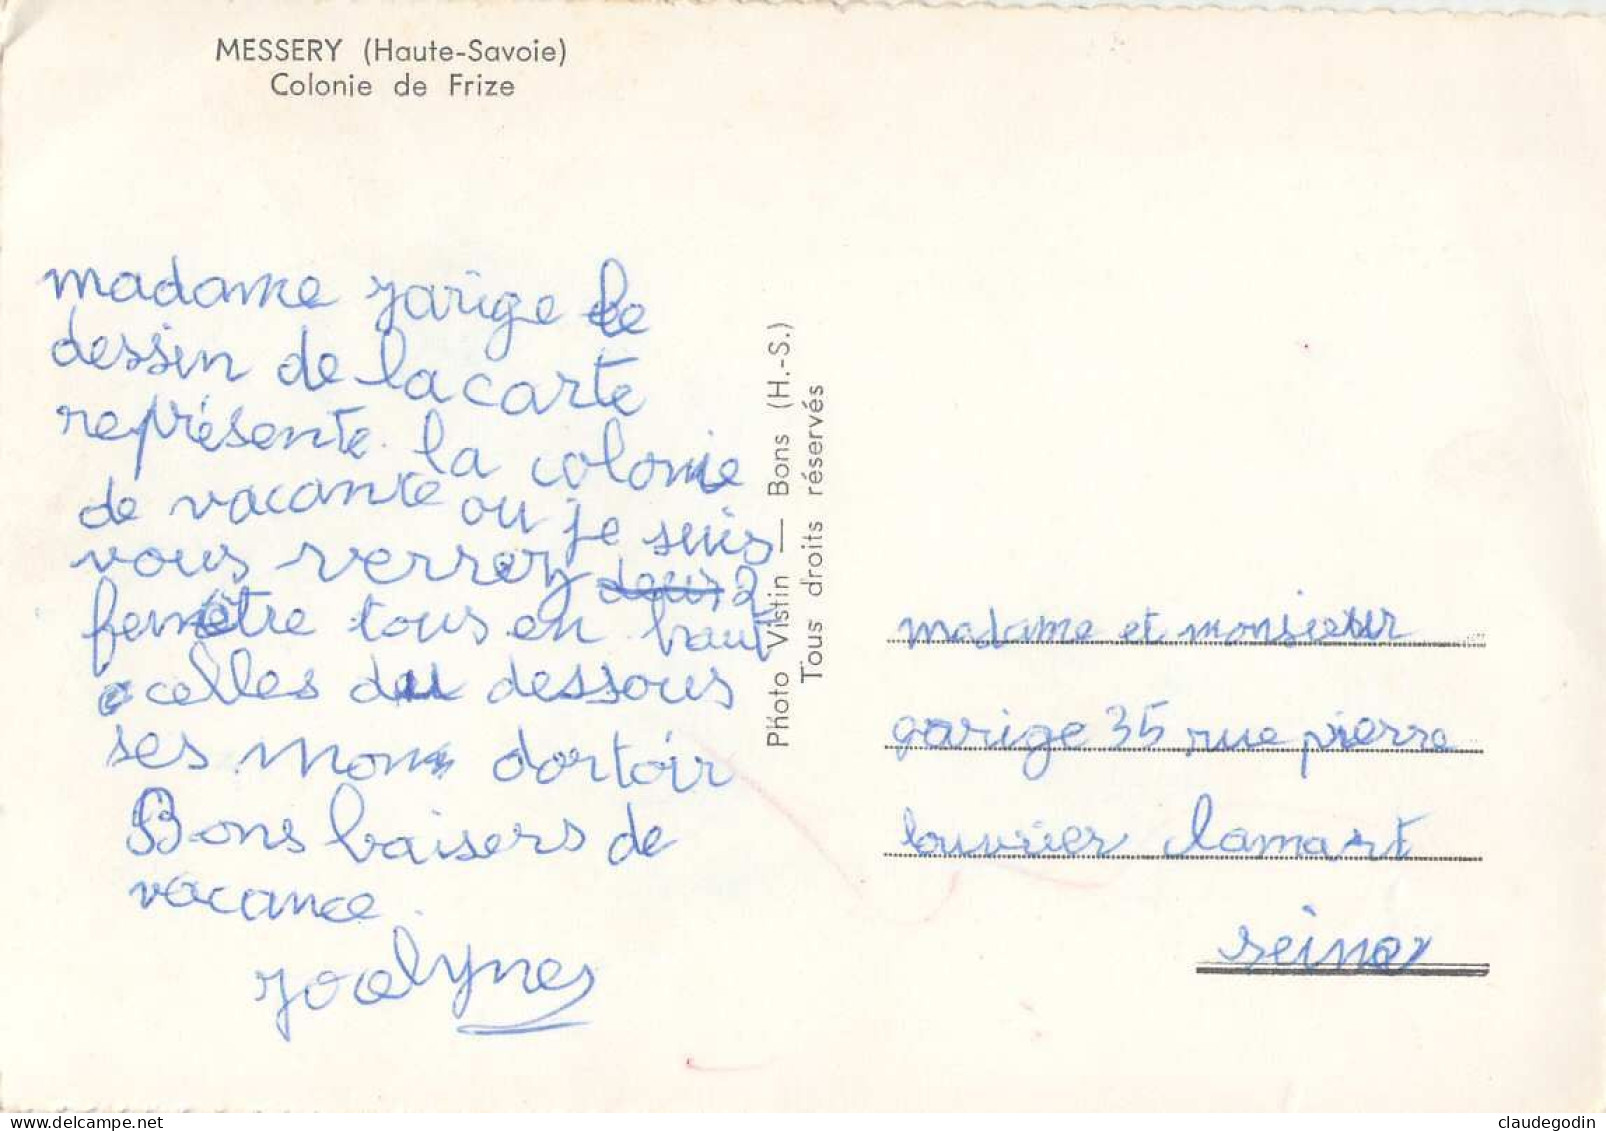 MESSERY (Haute-Savoie)
Colonie de Frize
madame jarige le
dessin de la carte
représente la colonie
de vacante ou je suis
vous verrez 2
fenêtre tous en haut
celles du dessous
ses mon dortoir
Bons baisers de
vacance
jocelyne
Photo Vistin — Bons (H.-S.)
Tous droits réservés
madame et monsieur
garige 35 rue pierre
louvrier clamart
seine
claudegodin